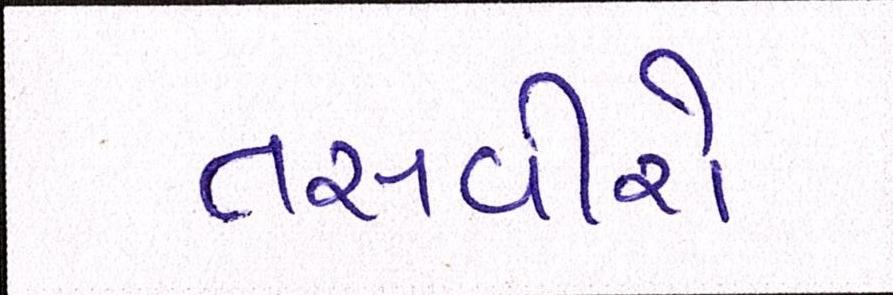 તસવીરો